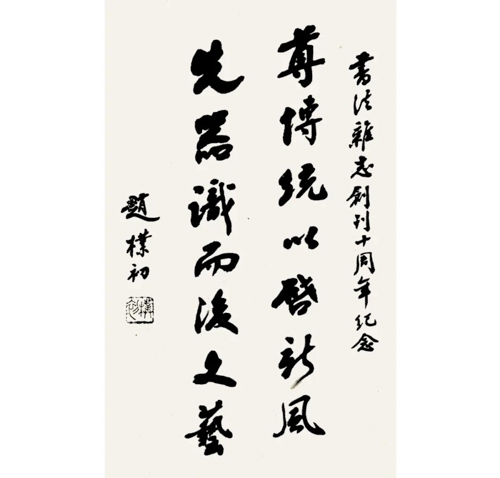 書法雜志創刊十周年纪念
尊傳統以啓新風
先器識而後文藝
趙樸初
樸初